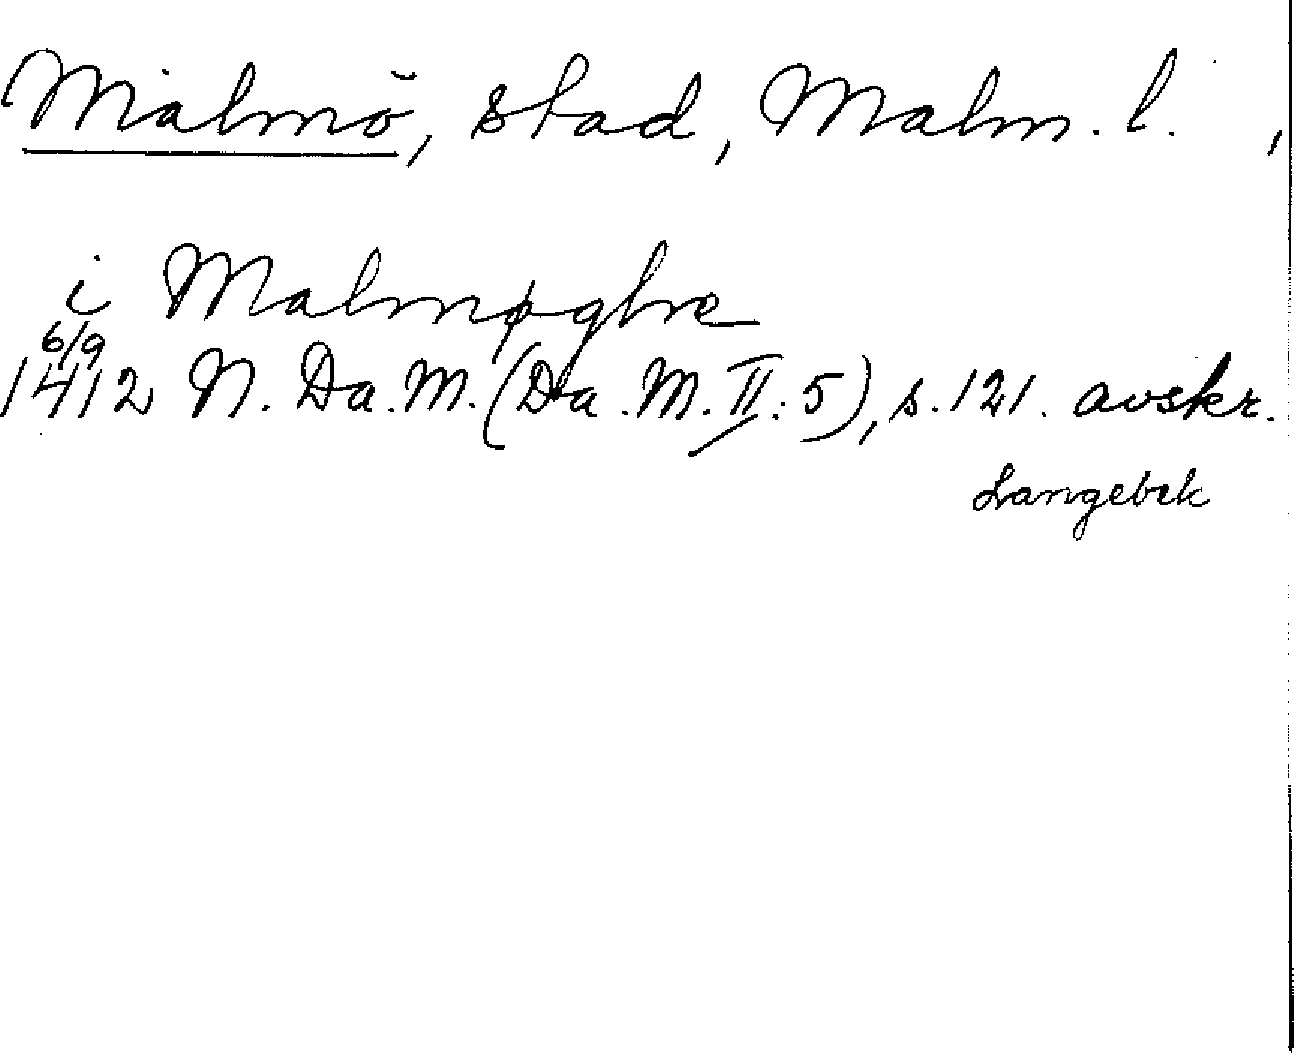 Malmö, stad, Malm. l. ,
i Malmøghæ
6/9
1412 N. Da. M. (Da. M. II: 5), s. 121. avskr.
Langebek